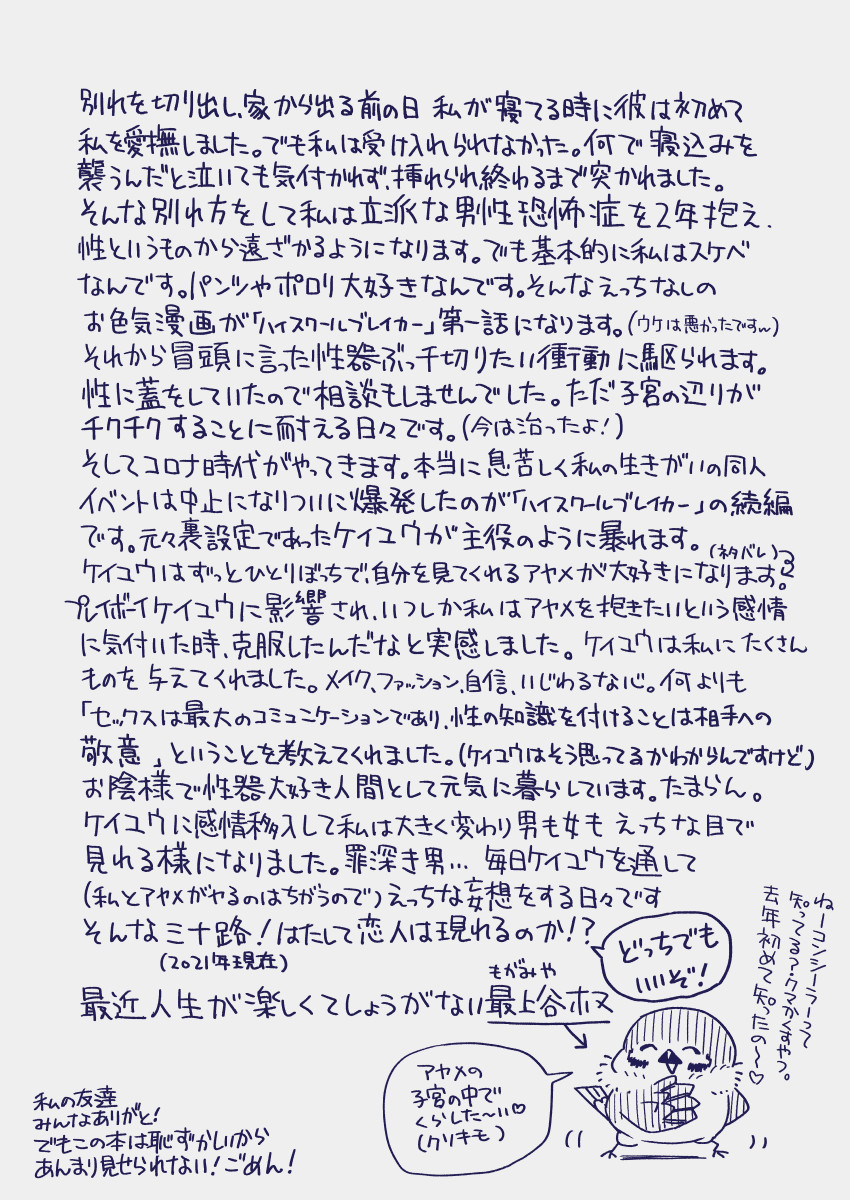 別れを切り出し、家から出る前の日 私が寝てる時に彼は初めて
私を愛撫しました。でも私は受け入れられなかった。何で寝込みを
襲うんだと泣いても気付かれず、挿れられ終わるまで突かれました。
そんな別れ方をして私は立派な男性恐怖症を2年抱え、
性というものから遠ざかるようになります。でも基本的に私はスケベ
なんです。パンツやポロリ大好きなんです。そんなえっちなしの
お色気漫画が「ハイスクールブレイカー」第一話になります。(ウケは悪かったですw)
それから冒頭に言った性器ぶっ千切りたい衝動に駆られます。
性に蓋をしていたので相談もしませんでした。ただ子宮の辺りが
チクチクすることに耐える日々です。(今は治ったよ！)
そしてコロナ時代がやってきます。本当に息苦しく私の生きがいの同人
イベントは中止になりついに爆発したのが「ハイスクールブレイカー」の続編
です。元々裏設定であったケイユウが主役のように暴れます。
(ネタバレいつ?)
ケイユウはずっとひとりぼっちで、自分を見てくれるアヤメが大好きになります。
プレイボーイケイユウに影響され、いつしか私はアヤメを抱きたいという感情
に気付いた時、克服したんだなと実感しました。ケイユウは私にたくさん
ものを与えてくれました。メイク、ファッション、自信、いじわるな心。何よりも
「セックスは最大のコミュニケーションであり、性の知識を付けることは相手への
敬意」ということを教えてくれました。(ケイユウはそう思ってるかわからんですけど)
お陰様で性器大好き人間として元気に暮らしています。たまらん。
ケイユウに感情移入して私は大きく変わり男も女もえっちな目で
見れる様になりました。罪深き男… 毎日ケイユウを通して
(私とアヤメがヤるのはちがうので)えっちな妄想をする日々です
そんなミナ路！はたして恋人は現れるのか！？
(2021年現在)
どっちでも
いいぞ！
もがみや
最近人生が楽しくてしょうがない最上谷ホヌ
ねーコンシーラーって
知ってる？クマかくすやつ。
去年初めて知ったの〜♡
アヤメの
子宮の中で
くらした〜い♡
(クソキモ)
私の友達
みんなありがと！
でもこの本は恥ずかしいから
あんまり見せられない！ごめん！